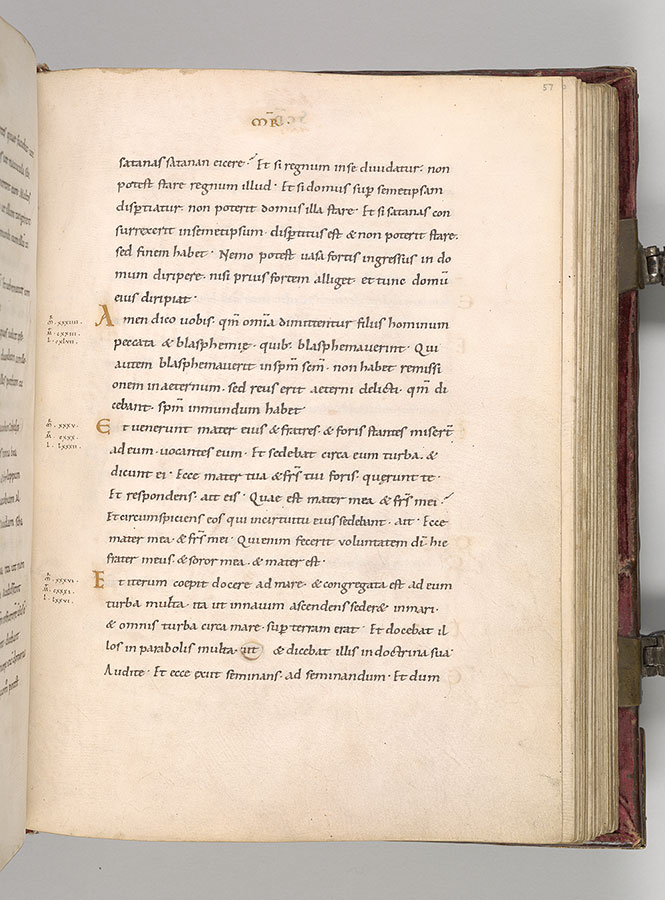 57
MR
satanas satanan eicere? Et si regnum inse diuidatur· non
potest stare regnum illud· Et si domus sup semetipsam
dispertiatur· non poterit domus illa stare· Et si satanas con
surrexerit insemetipsum· dispertitus est & non poterit stare·
sed finem habet· Nemo potest uasa fortis ingressus in do
mum diripere· nisi prius fortem alliget· et tunc domū
eius diripiat·
Amen dico uobis· qm̄ omīa dimittentur filiis hominum
peccata & blasphemię· quib· blasphemauerint· Qui
autem blasphemauerit inspm̄ scm̄· non habet remissi
onem inaeternum· sed reus erit aeterni delicti· qm̄ di
cebant· spm̄ inmundum habet
Et uenerunt mater eius & fratres· & foris stantes miserт̄
ad eum· uocantes eum· Et sedebat circa eum turba· &
dicunt ei· Ecce mater tua & frs̄ tui foris· querunt te·
Et respondens· ait eis· Quae est mater mea & frs̄ mei?
Et circumspiciens eos qui incircuitu eius sedebant· ait· Ecce
mater mea· & frs̄ mei· Qui enim fecerit uoluntatem dī· hic
frater meus· & soror mea· & mater est·
Et iterum coepit docere ad mare· & congregata est ad eum
turba multa· ita ut innauim ascendens sederet inmari·
& omnis turba circa mare· sup terram erat· Et docebat il
los in parabolis multa· & dicebat illis indoctrina sua·
Audite· Et ecce exiit seminans· ad seminandum· Et dum
R
m̄·xxxiiii·
m̄·cxxiii·
l·cxlvii·
R
m̄·xxxv·
m̄·cxxx·
l·lxxxii·
R
m̄·xxxvi·
m̄·cxxxi·
l·lxxvi·